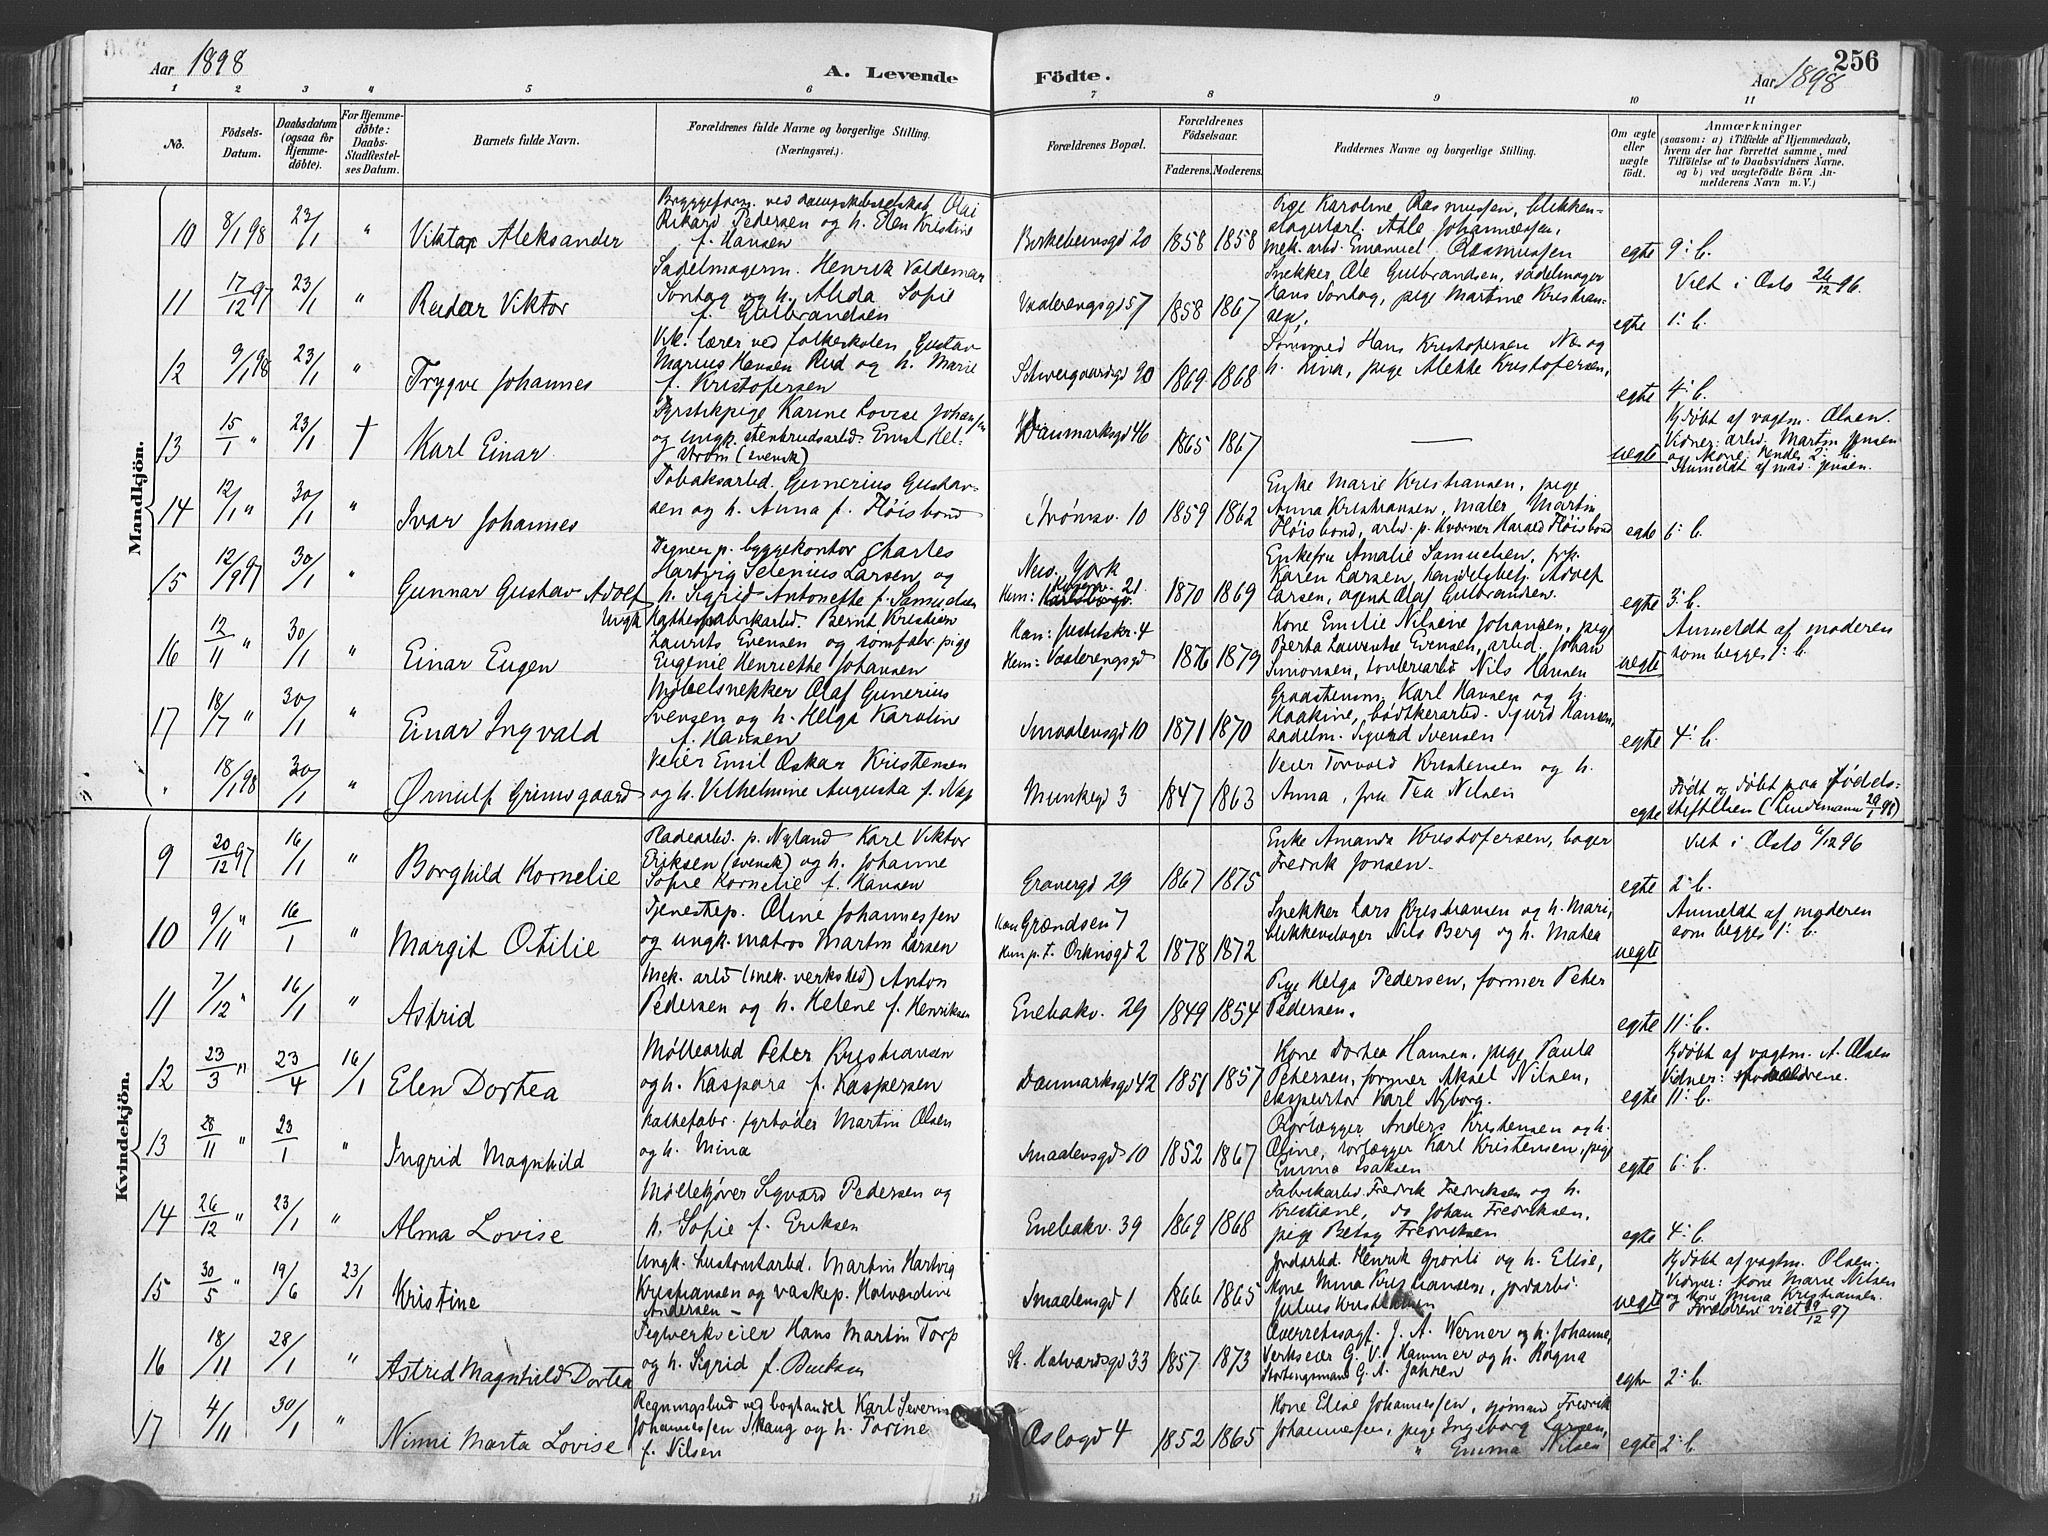 Aar 1898
A. Levende
Födte.
Aar 1898
256
1 2 3 4 5 6 7 8 9 10 11
No.
Födsels-Datum.
Daabsdatum (ogsaa for Hjemmedöbte).
For Hjemmedöbte: Daabs-Stadfæstelses Datum.
Barnets fulde Navn.
Forældrenes fulde Navne og borgerlige Stilling.
(Næringsvei.)
Forældrenes Bopæl.
Forældrenes Födselsaar.
Faderens. Moderens.
Faddernes Navne og borgerlige Stilling.
Om ægte eller uægte födt.
Anmærkninger
(saasom: a) i Tilfælde af Hjemmedaab,
hvem der har forrettet samme, med
Tilföielse af to Daabsvidners Navne,
og b) ved uægtefödte Börn Anmelderens Navn m. V.)
Mandkjön.
10 8/1 98 23/1 " Viktor Aleksander
Bryggeform. ved dampskibsselskab Olai
Rikard Pedersen og h. Elen Kristine
f. Hansen
Birkebeinsgd 20 1858 1858
Pige Karoline Rasmussen, blikken-
slagerlærl. Atle Johannessen,
mek. arbd. Emanuel Rasmussen
egte 9: b.
11 17/12 97 23/1 " Reidar Viktor
Sadelmagerm. Henrik Valdemar
Sontag og h. Alida Sofie
f. Gulbrandsen
Vaalerengsgd 57 1858 1867
Snekker Ole Gulbrandsen, sadelmager
Hans Sontag, pige Martine Kristian-
sen,
egte Viet i Oslo 26/12 96.
1: b.
12 9/1 98 23/1 " Trygve Johannes
Vik. lærer ved folkeskolen Gustav
Marius Hansen Rud og h. Marie
f. Kristofersen
Schweigaardsgd 90 1869 1868
Sømand Hans Kristofersen Næs og
h. Lina, pige Alette Kristofersen,
egte 4: b.
13 15/1 " 23/1 † Karl Einar
Fyrstikpige Karine Lovise Johansen
og ungk. stenbrudsarbd. Ernst Hel-
strøm (svensk)
Danmarksgd 46 1865 1867
—
uegte Hjdøbt af vagtm. Olsen.
Vidner: arbd. Martin Jensen
og kone. Hendes 2: b.
Anmeldt af mad. Jensen.
14 12/1 " 30/1 " Ivar Johannes
Tobaksarbd. Gunerius Gustav-
sen og h. Anna f. Fløisbond
Strømsv. 10 1859 1862
Enke Marie Kristiansen, pige
Anna Kristiansen, maler Martin
Fløisbond, arbd. p. Kværner Harald Fløisbond
egte 6: b.
15 12/9 97 30/1 " Gunnar Gustav Adolf
Tegner p. byggekontor Charles
Hartvig Selenius Larsen og
h. Sigrid Antonette f. Samuelsen
New York
Hun: 21 1870 1869
Enkefru Amalie Samuelsen, frk.
Karen Larsen, handelsbetj. Adolf
Larsen, agent Olaf Gulbrandsen.
egte 3: b.
16 12/11 " 30/1 " Einar Eugen
Ungk. Hattefabrikarbd. Bernt Kristian
Laurits Evensen og sømfabr. pige
Eugenie Henriette Johansen
Han: Justitskr. 4
Hun: Vaalerengsgd 1876 1879
Kone Emilie Nilsine Johansen, pige
Berta Laurentse Evensen, arbd. Johan
Simonsen, toveriarbd Nils Hansen
uegte Anmeldt af moderen
som begges 1: b.
17 18/7 " 30/1 " Einar Ingvald
Møbelsnekker Olaf Gunerius
Svensen og h. Helga Karoline
f. Hansen
Smaalensgd 10 1871 1870
Graastensm. Karl Hansen og h.
Haakine, bødtkerarbd. Sigurd Hansen,
sadelm. Sigurd Svensen
egte 4: b.
" 18/1 98 30/1 " Ørnulf Grimsgaard
Veier Emil Oskar Kristensen
og h. Vilhelmine Augusta f. Næs
Munkegd 3 1847 1863
Veier Torvald Kristensen og h.
Anna, fru Tea Nilsen
egte Født og døbt paa Føds-
stiftelsen (Lindemann 29/1 98)
Kvindekjön.
9 20/12 97 16/1 " Borghild Kornelie
Pladearbd. p. Nyland Karl Viktor
Eriksen (svensk) og h. Johanne
Sofie Kornelie f. Hansen
Gravergd 29 1867 1875
Enke Amanda Kristofersen, bager
Fredrik Jonsen.
egte Viet i Oslo 6/12 96
2: b.
10 9/11 " 16/1 " Margit Otilie
Tjenestep. Oline Johannessen
og ungk. matros Martin Larsen
Han Grændsen 7
Hun p. t. Orknøgd 2 1878 1872
Snekker Lars Kristiansen og h. Mari,
blikkenslager Nils Berg og h. Matea
uegte Anmeldt af moderen
som begges 1: b.
11 7/12 " 16/1 " Astrid
Mek. arbd (mek. verksted) Anton
Pedersen og h. Helene f. Henriksen
Enebakv. 29 1849 1854
Pige Helga Pedersen, former Peter
Pedersen.
egte 11: b.
12 23/3 " 23/4 16/1 Elen Dortea
Møllearbd Peter Kristiansen
og h. Kaspara f. Kaspersen
Danmarksgd 42 1851 1857
Kone Dortea Hansen, pige Paula
Petersen, former Aksel Nilsen,
ekspeditør Karl Nyborg.
egte Hjdøbt af vagtm. A. Olsen
Vidner: forældrene.
11: b.
13 28/11 " 23/1 " Ingrid Magnhild
Hattefabr. fyrbøder Martin Olsen
og h. Mina
Smaalensgd 10 1852 1867
Rørlægger Anders Kristensen og h.
Oline, rørlægger Karl Kristensen, pige
Emma Isaksen
egte 6: b.
14 26/12 " 23/1 " Alma Lovise
Møllekjører Sigvard Pedersen og
h. Sofie f. Eriksen
Enebakv. 39 1869 1868
Fabrikarbd. Fredrik Fredriksen og h.
Kristiane, do Johan Fredriksen,
pige Betsy Fredriksen
egte 4: b.
15 30/5 " 19/6 23/1 Kristine
Ungk. Lustomtarbd. Martin Hartvig
Kristiansen og vaskep. Halvardine
Andersen –
Smaalensgd 1 1866 1865
Jordarbd. Henrik Grønli og h. Elise,
kone Mina Kristiansen, jordarbd
Julius Kristiansen
uegte Hjdøbt af vagtm. Olsen.
Vidner: kone Marie Nilsen
og kone Mina Kristiansen.
Forældrene viet 29/12 97
16 18/11 28/1 " Astrid Magnhild Dortea
Teglverkseier Hans Martin Torp
og h. Sigrid f.
St. Halvardsgd 33 1857 1873
Overretssagf. J. A. Werner og h. Johanne,
Verkseier G. V. Hammer og h. Ragna
Stortingsmand G. A. Jahren
egte 2: b.
17 4/11 30/1 " Ninni Marta Lovise
Regningsbud ved boghandel Karl Severin
Johannessen Skaug og h. Torine
f. Nilsen
Oslogd 4 1852 1865
Kone Elise Johannessen, sjømand Fredrik
Johannessen, pige Ingeborg Larsen,
" Emma Nilsen
egte 2: b.